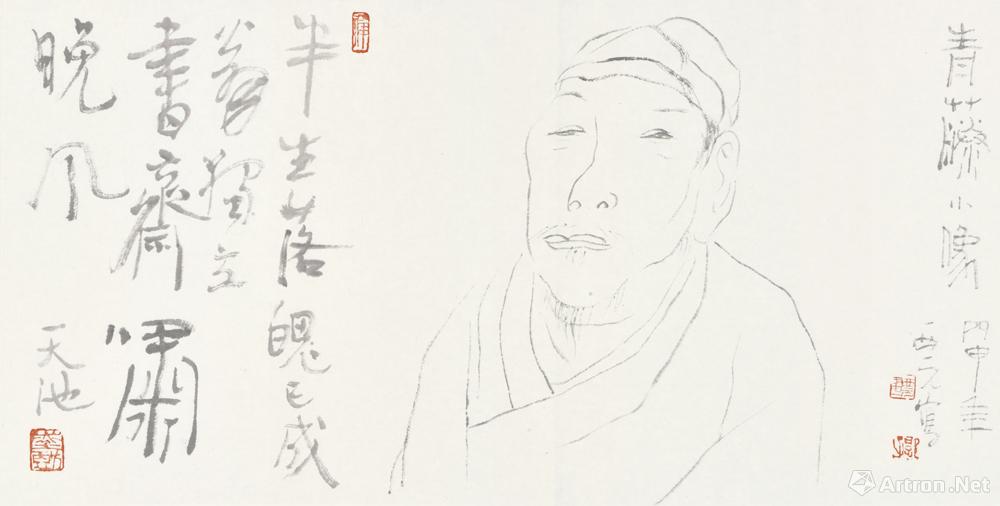 青藤小像
丙申年
半生落魄已成
翁獨立
書齋嘯
晚风
天池
Artron.Net